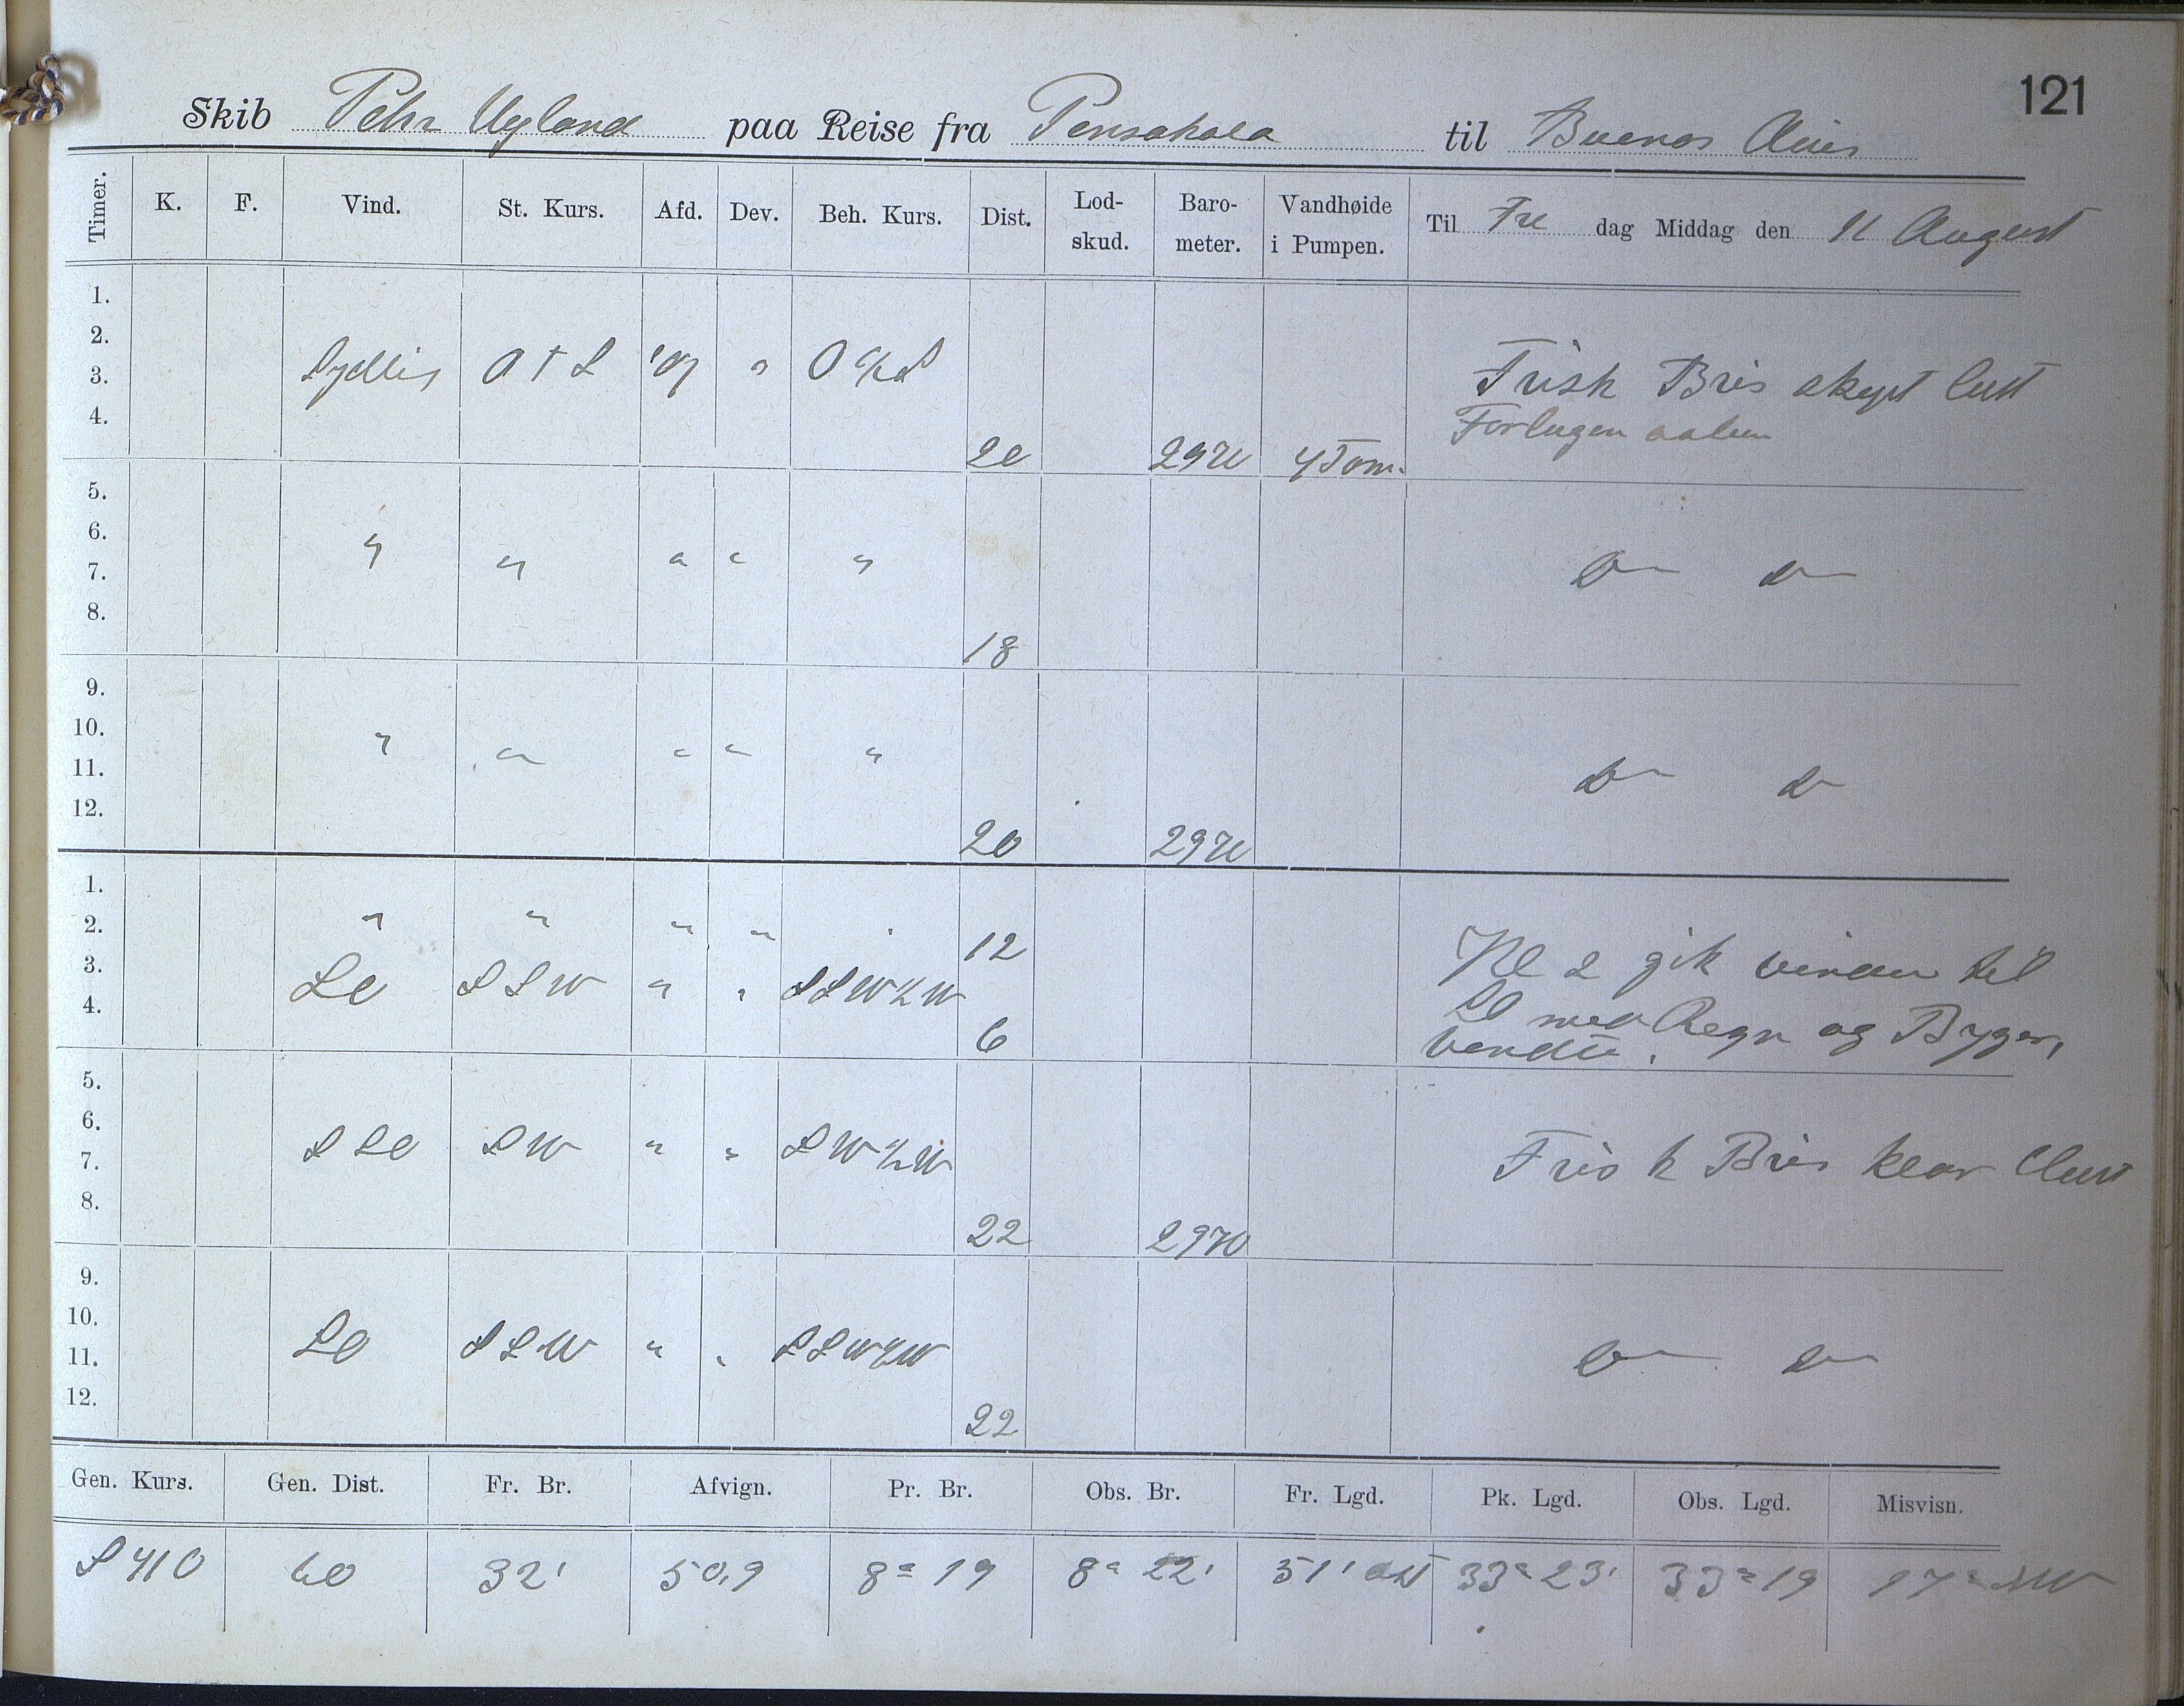 121
Skib Pehr Ugland paa Reise fra Pensakola til Buenos Aires
Timer. K. F. Vind. St. Kurs. Afd. Dev. Beh. Kurs. Dist. Lod-skud. Baro-meter. Vandhøide i Pumpen. Til Fre dag Middag den 11 August
1.
2.
3. Sydlig O t S " Frisk Bris skyet luft
4.
20 4 Tom.
5.
6.
7. " " " " " Do Do
8.
18
9.
10.
11. " " " " " Do Do
12.
20
1.
2. " " " " 12
3. SO SSW " " SSW½W Kl 2 gik vinden til
4. 6 SO med Regn og Byger,
vendte.
5.
6.
7. SSO SW " " SW½W Frisk Bris klar Luft
8.
22 2970
9.
10.
11. SO SSW " " SSW½W Do Do
12.
22
Gen. Kurs. Gen. Dist. Fr. Br. Afvign. Pr. Br. Obs. Br. Fr. Lgd. Pk. Lgd. Obs. Lgd. Misvisn.
60 32' 50,9 8° 19 8° 22' 51' 33° 23' 33° 19 17° NW